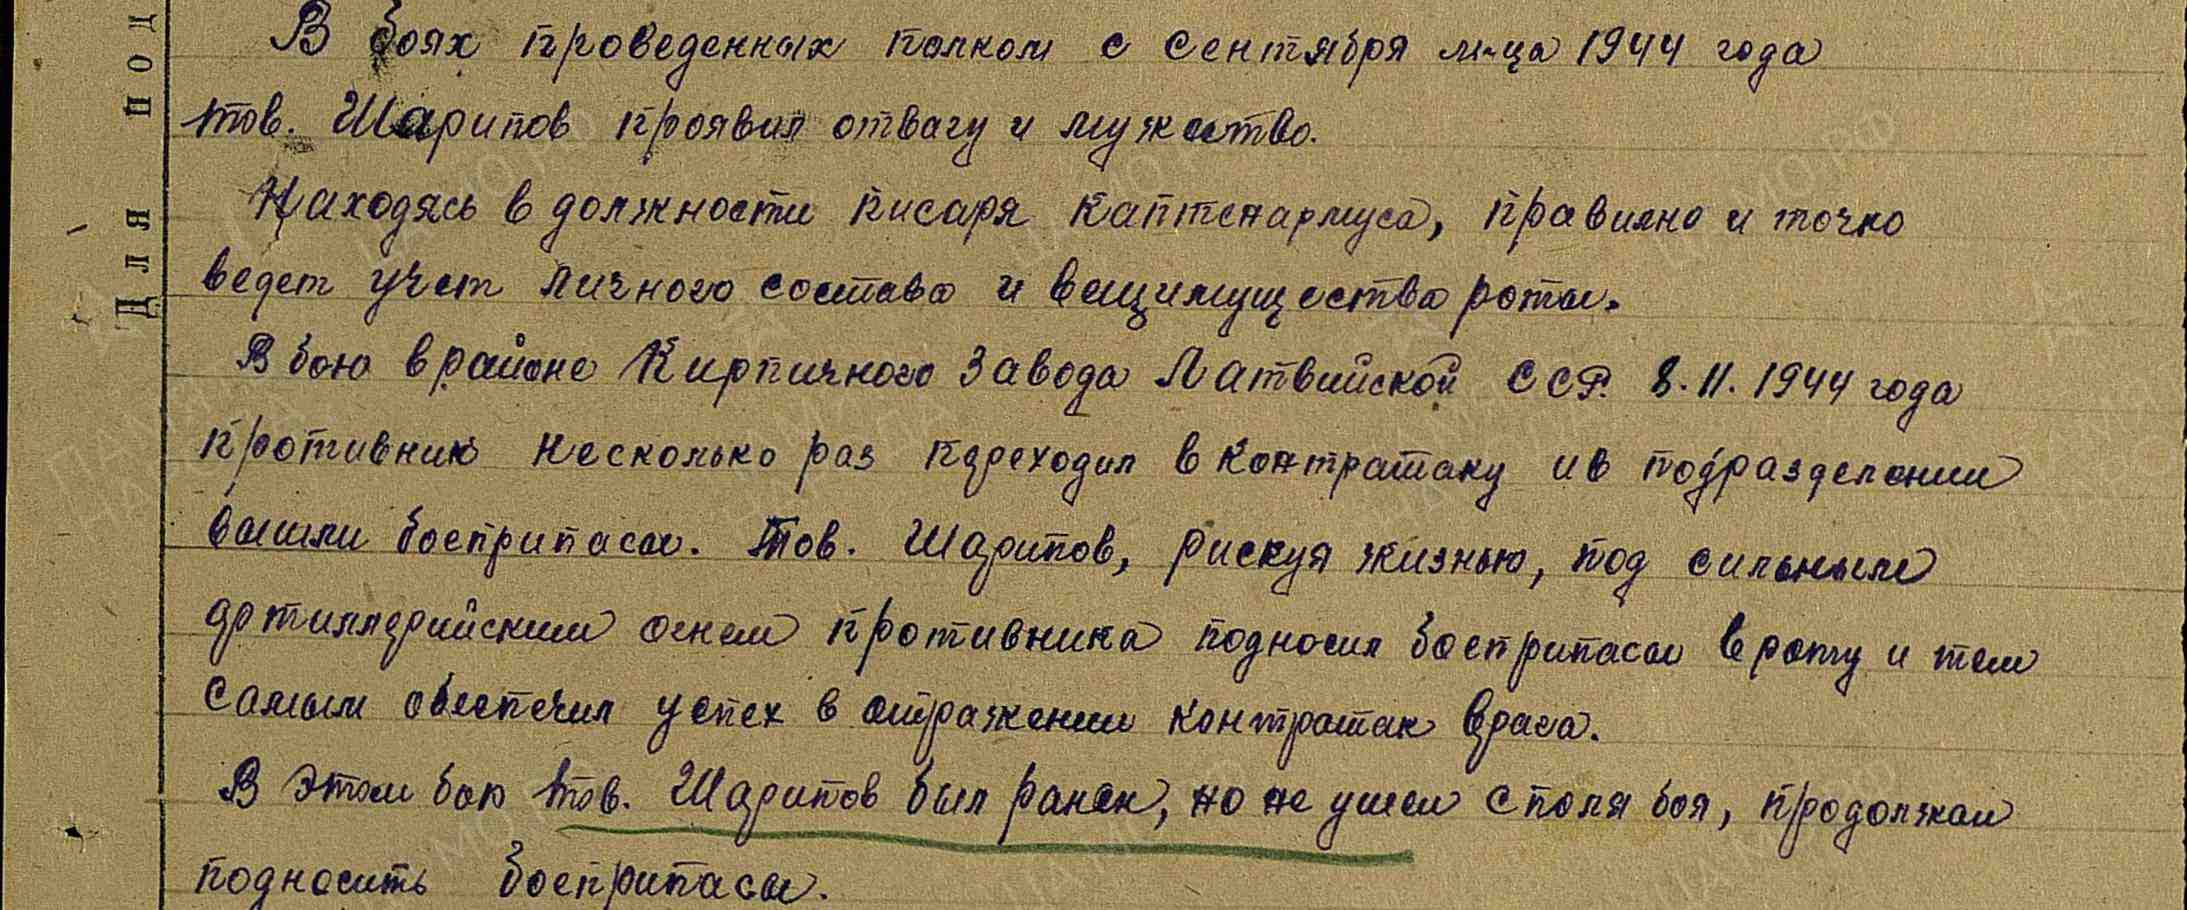 В боях проведенных полком с сентября м-ца 1944 года
тов. Шарипов проявил отвагу и мужество.
Находясь в должности писаря каптенармуса, правильно и точно
ведет учет личного состава и вещимущества роты.
В бою в районе Кирпичного Завода Латвийской ССР. 8.11.1944 года
противник несколько раз переходил в контратаку и в подразделении
вышли боеприпасы. Тов. Шарипов, рискуя жизнью, под сильным
артиллерийским огнем противника подносил боеприпасы в роту и тем
самым обеспечил успех в отражении контратак врага.
В этом бою тов. Шарипов был ранен, но не ушел с поля боя, продолжал
подносить боеприпасы.
Для доп